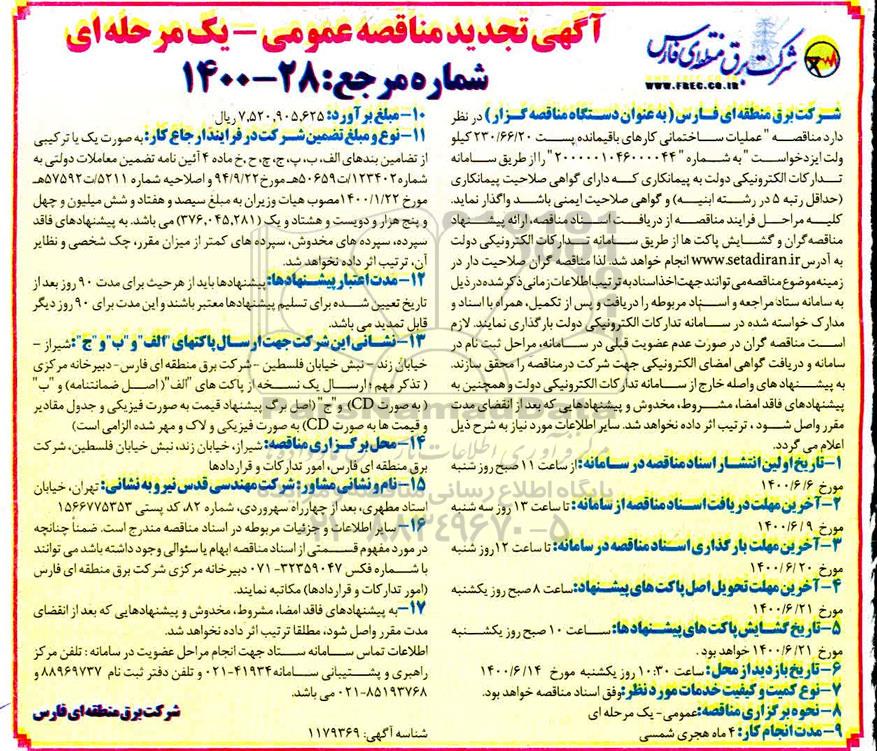 شرکت برق منطقه‌ای فارس
WWW.FREC.CO.IR
آگهی تجدید مناقصه عمومی - یک مرحله ای
شماره مرجع: ۲۸-۱۴۰۰
شرکت برق منطقه ای فارس (به عنوان دستگاه مناقصه گزار) در نظر
دارد مناقصه "عملیات ساختمانی کارهای باقیمانده پست ۲۳۰/۶۶/۲۰ کیلو
ولت ایزدخواست" به شماره "۲۰۰۰۰۰۱۰۴۶۰۰۰۰۴۴" را از طریق سامانه
تدارکات الکترونیکی دولت به پیمانکاری که دارای گواهی صلاحیت پیمانکاری
(حداقل رتبه ۵ در رشته ابنیه) و گواهی صلاحیت ایمنی باشد واگذار نماید.
کلیه مراحل فرایند مناقصه از دریافت اسناد مناقصه، ارائه پیشنهاد
مناقصه گران و گشایش پاکت ها از طریق سامانه تدارکات الکترونیکی دولت
به آدرس www.setadiran.ir انجام خواهد شد. لذا مناقصه گران صلاحیت دار در
زمینه موضوع مناقصه می توانند جهت اخذ اسناد به ترتیب اطلاعات زمانی ذکر شده در ذیل
به سامانه ستاد مراجعه و اسناد مربوطه را دریافت و پس از تکمیل، همراه با اسناد و
مدارک خواسته شده در سامانه تدارکات الکترونیکی دولت بارگذاری نمایند. لازم
است مناقصه گران در صورت عدم عضویت قبلی در سامانه، مراحل ثبت نام در
سامانه و دریافت گواهی امضای الکترونیکی جهت شرکت در مناقصه را محقق سازند.
به پیشنهادهای واصله خارج از سامانه تدارکات الکترونیکی دولت و همچنین به
پیشنهادهای فاقد امضا، مشروط، مخدوش و پیشنهادهایی که بعد از انقضای مدت
مقرر واصل شود، ترتیب اثر داده نخواهد شد. سایر اطلاعات مورد نیاز به شرح ذیل
اعلام می گردد.
۱- تاریخ اولین انتشار اسناد مناقصه در سامانه: از ساعت ۱۱ صبح روز شنبه
مورخ ۱۴۰۰/۶/۶
۲- آخرین مهلت دریافت اسناد مناقصه از سامانه: تا ساعت ۱۳ روز سه شنبه
مورخ ۱۴۰۰/۶/۹
۳- آخرین مهلت بارگذاری اسناد مناقصه در سامانه: تا ساعت ۱۲ روز شنبه
مورخ ۱۴۰۰/۶/۲۰
۴- آخرین مهلت تحویل اصل پاکت های پیشنهاد: ساعت ۸ صبح روز یکشنبه
مورخ ۱۴۰۰/۶/۲۱
۵- تاریخ گشایش پاکت های پیشنهادها: ساعت ۱۰ صبح روز یکشنبه
مورخ ۱۴۰۰/۶/۲۱ خواهد بود.
۶- تاریخ بازدید از محل: ساعت ۱۰:۳۰ روز یکشنبه مورخ ۱۴۰۰/۶/۱۴
۷- نوع کمیت و کیفیت خدمات مورد نظر: وفق اسناد مناقصه خواهد بود.
۸- نحوه برگزاری مناقصه: عمومی - یک مرحله ای
۹- مدت انجام کار: ۴ ماه هجری شمسی
۱۰- مبلغ برآورد: ۷,۵۲۰,۹۰۵,۶۲۵ ریال
۱۱- نوع و مبلغ تضمین شرکت در فرایند ارجاع کار: به صورت یک یا ترکیبی
از تضامین بندهای الف، ب، پ، ج، چ، ح، خ ماده ۴ آئین نامه تضمین معاملات دولتی به
شماره ۱۲۳۴۰۲/ت۵۰۶۵۹هـ مورخ ۹۴/۹/۲۲ و اصلاحیه شماره ۵۲۱۱/ت۵۷۵۹۲هـ
مورخ ۱۴۰۰/۱/۲۲ مصوب هیات وزیران به مبلغ سیصد و هفتاد و شش میلیون و چهل
و پنج هزار و دویست و هشتاد و یک (۳۷۶,۰۴۵,۲۸۱) می باشد. به پیشنهادهای فاقد
سپرده، سپرده های مخدوش، سپرده های کمتر از میزان مقرر، چک شخصی و نظایر
آن، ترتیب اثر داده نخواهد شد.
۱۲- مدت اعتبار پیشنهادها: پیشنهادها باید از هر حیث برای مدت ۹۰ روز بعد از
تاریخ تعیین شده برای تسلیم پیشنهادها معتبر باشند و این مدت برای ۹۰ روز دیگر
قابل تمدید می باشد.
۱۳- نشانی این شرکت جهت ارسال پاکتهای "الف" و "ب" و "ج": شیراز -
خیابان زند - نبش خیابان فلسطین - شرکت برق منطقه ای فارس - دبیرخانه مرکزی
(تذکر مهم: ارسال یک نسخه از پاکت های "الف" (اصل ضمانتنامه) و "ب"
(به صورت CD) و "ج" (اصل برگ پیشنهاد قیمت به صورت فیزیکی و جدول مقادیر
و قیمت ها به صورت CD) به صورت فیزیکی و لاک و مهر شده الزامی است)
۱۴- محل برگزاری مناقصه: شیراز، خیابان زند، نبش خیابان فلسطین، شرکت
برق منطقه ای فارس، امور تدارکات و قراردادها
۱۵- نام و نشانی مشاور: شرکت مهندسی قدس نیرو به نشانی: تهران، خیابان
استاد مطهری، بعد از چهارراه سهروردی، شماره ۸۲، کد پستی ۱۵۶۶۷۷۵۳۵۳
۱۶- سایر اطلاعات و جزئیات مربوطه در اسناد مناقصه مندرج است. ضمناً چنانچه
در مورد مفهوم قسمتی از اسناد مناقصه ابهام یا سئوالی وجود داشته باشد می توانند
با شماره فکس ۳۲۳۵۹۰۴۷-۰۷۱ دبیرخانه مرکزی شرکت برق منطقه ای فارس
(امور تدارکات و قراردادها) مکاتبه نمایند.
۱۷- به پیشنهادهای فاقد امضا، مشروط، مخدوش و پیشنهادهایی که بعد از انقضای
مدت مقرر واصل شود، مطلقا ترتیب اثر داده نخواهد شد.
اطلاعات تماس سامانه ستاد جهت انجام مراحل عضویت در سامانه: تلفن مرکز
راهبری و پشتیبانی سامانه ۴۱۹۳۴-۰۲۱ و تلفن دفتر ثبت نام ۸۸۹۶۹۷۳۷ و
۸۵۱۹۳۷۶۸-۰۲۱ می باشد.
شرکت برق منطقه ای فارس
شناسه آگهی: ۱۱۷۹۳۶۹
ParsNamadData
پایگاه اطلاع رسانی مناقصه و مزایده
۰۲۱-۸۸۳۴۹۶۷۰-۵